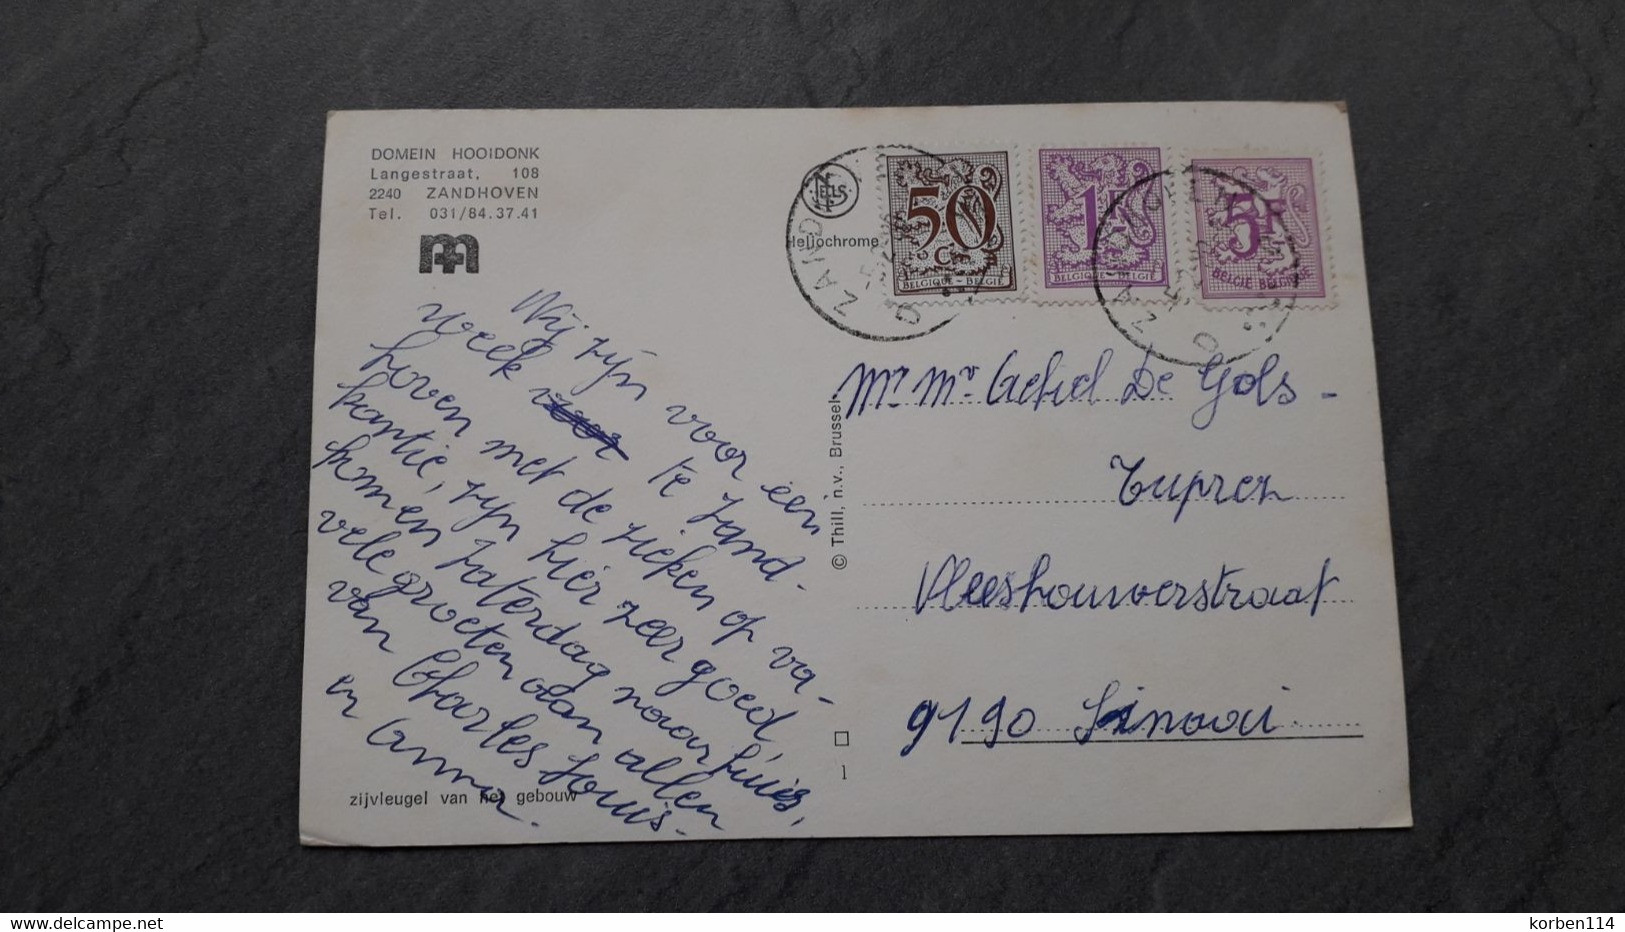 DOMEIN HOOIDONK
Langestraat, 108
2240 ZANDHOVEN
Tel. 031/84.37.41
Heliochrome
NELS
50
C
BELGIQUE - BELGIË
1F
BELGIQUE - BELGIË
5F
BELGIE BELGIQUE
Wij zijn voor een
week voor te zand-
hoven met de zieken op va-
kantie, zijn hier zeer goed,
komen zaterdag naar huis,
vele groeten aan allen
van Charles Louis
en Anna.
zijvleugel van het gebouw
© Thill, n.v., Brussel
1
Mr Mv Achiel De Gols -
Vleeshouwerstraat
9190 Sinaai
korben114